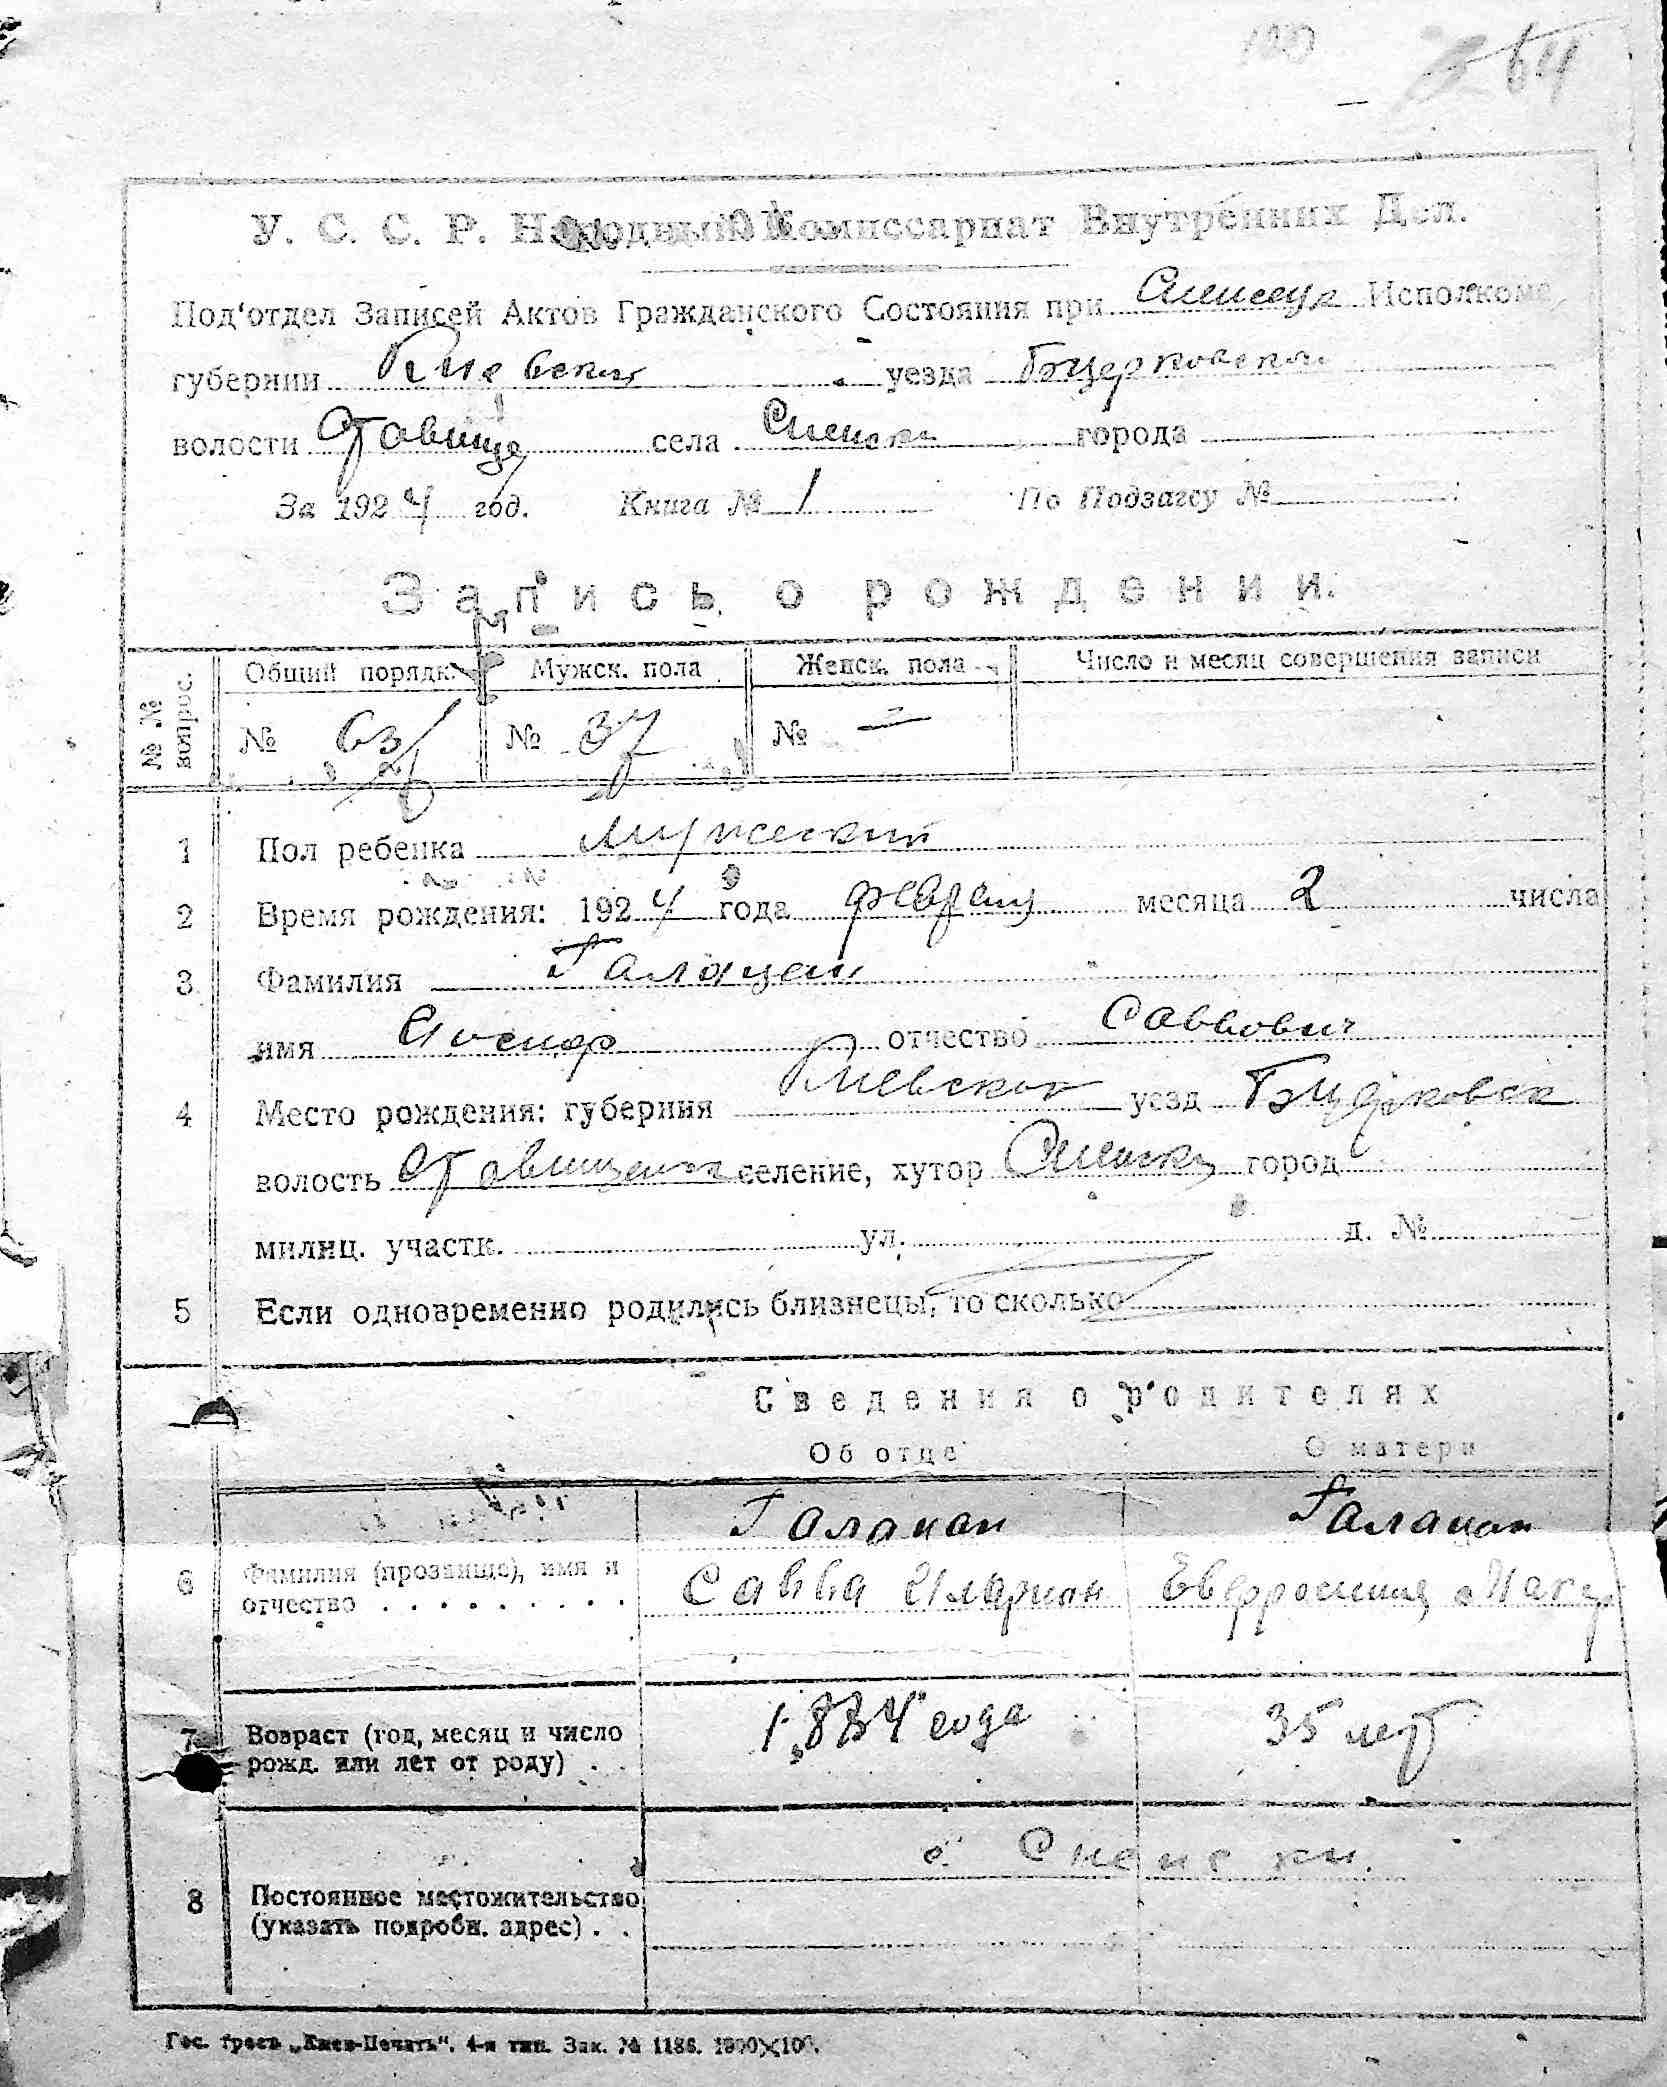 64
У. С. С. Р. Народный Комиссариат Внутренних Дел.
Под'отдел Записей Актов Гражданского Состояния при Исполкоме,
губернии Киевския уезда Бцерковской
волости Ставище села города
За 1924 год. Книга № 1 По Подзагсу №
Запись о рождении.
№ № вопрос. Общий порядк. Мужск. пола Женск. пола Число и месяц совершения записи
№ 63 № 37 № —
1 Пол ребенка мужеский
2 Время рождения: 1924 года февраля месяца 2 числа
3 Фамилия Галацан
имя Иосиф отчество Саввович
4 Место рождения: губерния Киевской уезд Бцерковск
волость селение, хутор город
милиц. участк. ул. д. №
5 Если одновременно родились близнецы, то сколько
Сведения о родителях
Об отце О матери
Галацан Галацан
6 Фамилия (прозвище), имя и отчество . . . . . . . . . Савва Иларион Еврросиния
7 Возраст (год, месяц и число рожд. или лет от роду) . . 1884 года 35 лет
8 Постоянное местожительство (указать подробн. адрес) . .
Гос. трест „Киев-Печать". 4-я тип. Зак. № 1186. 1900×100.